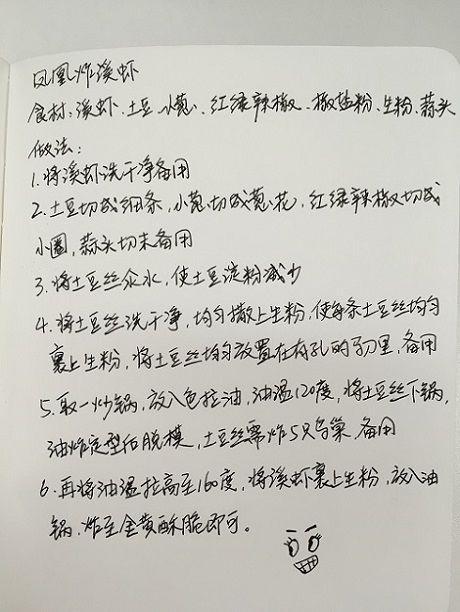 凤凰炸溪虾
食材:溪虾、土豆、小葱、红绿辣椒、椒盐粉、生粉、蒜头
做法:
1.将溪虾洗干净备用
2.土豆切成细条,小葱切成葱花,红绿辣椒切成
小圈,蒜头切末备用
3.将土豆丝汆水,使土豆淀粉减少
4.将土豆丝洗干净,均匀撒上生粉,使每条土豆丝均匀
裹上生粉,将土豆丝均匀放置在有孔的勺里,备用
5.取一炒锅,放入色拉油,油温120度,将土豆丝下锅,
油炸定型后脱模,土豆丝需炸5只鸟巢,备用
6.再将油温拉高至160度,将溪虾裹上生粉,放入油
锅,炸至金黄酥脆即可。